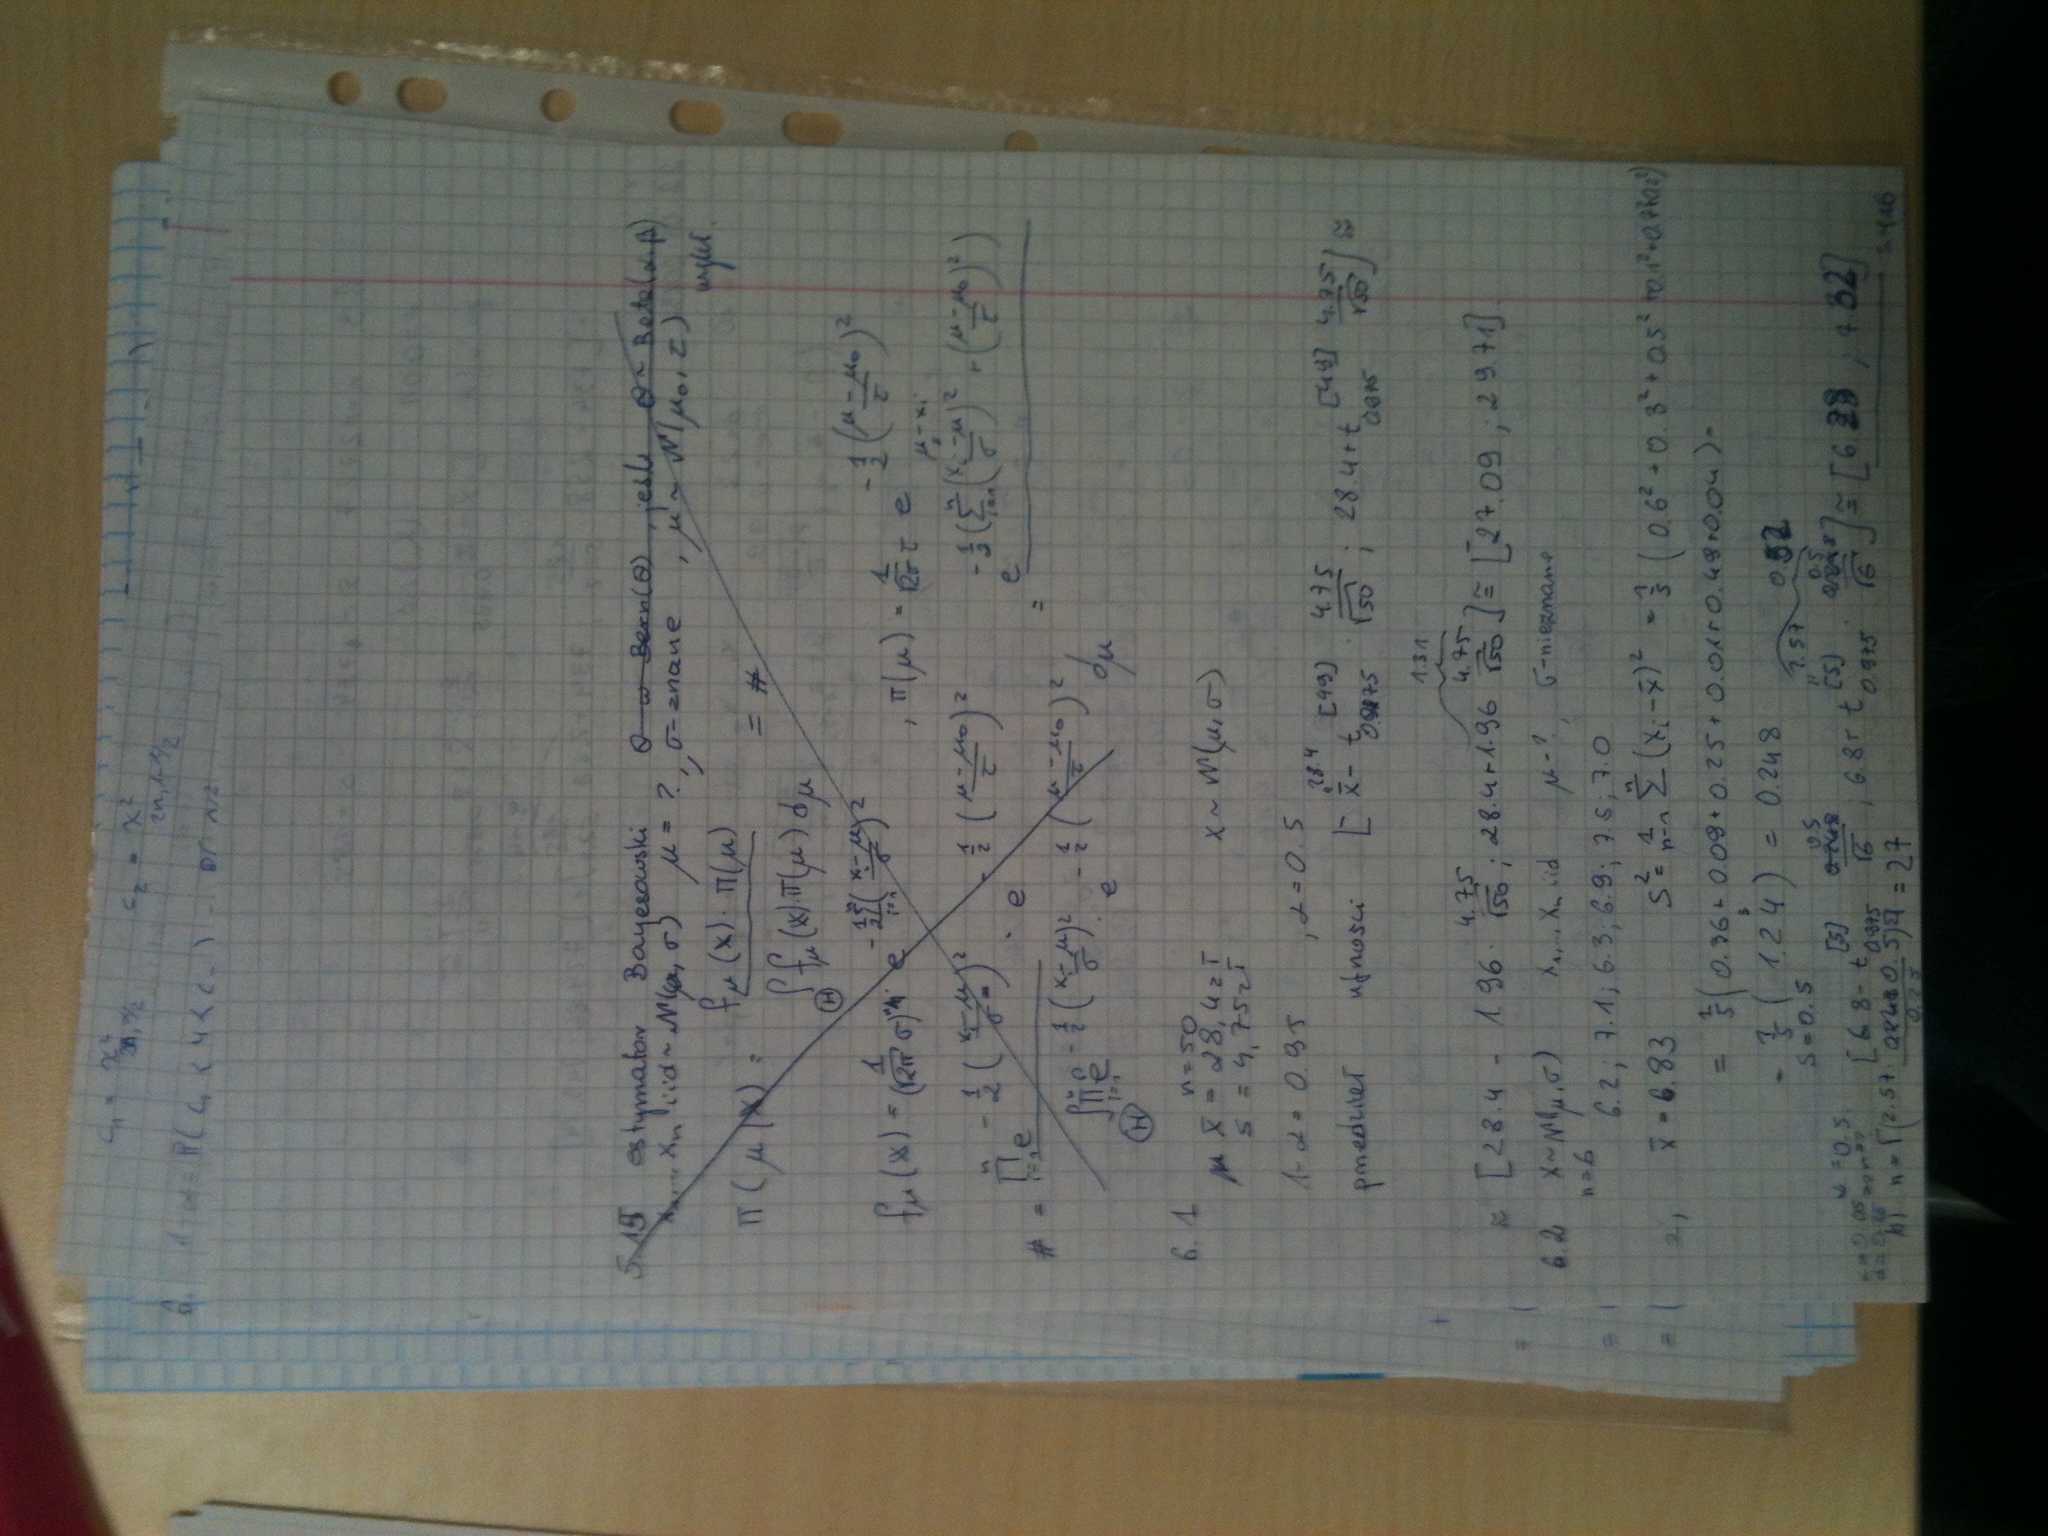 c₁ = χ²_{2n, α/2} c₂ = χ²_{2n, 1-α/2}
6. 1-α = P(c₁ <
5.15 estymator Bayesowski θ w Bern(θ), jeśli θ ~ Beta(α, β)
x₁,..., xₙ iid ~ N(μ, σ) μ = ?, σ - znane, μ ~ N(μ₀, τ)
π(μ|x) = f_μ(x)·π(μ) / ∫_Θ f_μ(x)·π(μ) dμ = #
f_μ(x) = 1/(√2π σ)ⁿ e^{-1/2 Σ_{i=1}^n ((x_i-μ)/σ)²}, π(μ) = 1/(√2σ τ) e^{-1/2 ((μ-μ₀)/τ)²}
μ-x_i
# = ∏_{i=1}^n e^{-1/2 ((x_i-μ)/σ)²} · e^{-1/2 ((μ-μ₀)/τ)²} / ∫_Θ ∏_{i=1}^n e^{-1/2 ((x_i-μ)/σ)²} · e^{-1/2 ((μ-μ₀)/τ)²} dμ = e^{-1/2 (Σ_{i=1}^n ((x_i-μ)/σ)² + ((μ-μ₀)/τ)²)}
6.1 n=50
μ x̄ = 28,4 zł x ~ N(μ, σ)
s = 4,75 zł
1-α = 0.95, α = 0.5
28.4
przedział ufności [x̄ - t_{0.975}^{[49]} · 4.75/√50 ; 28.4 + t_{0.975}^{[49]} 4.75/√50] ≈
1.31
≈ [28.4 - 1.96 · 4.75/√50 ; 28.4 + 1.96 4.75/√50] ≅ [27.09 ; 29.71]
6.2 x ~ N(μ, σ) x₁,..., xₙ iid μ - ?, σ - nieznane
n=6
6.2; 7.1; 6.3; 6.9; 7.5; 7.0
x̄ = 6.83 s² = 1/(n-1) Σⁿ (x_i - x̄)² = 1/5 (0.6² + 0.3² + 0.5² + 0.1² + 0.7² + 0.2²)
= 1/5 (0.36 + 0.09 + 0.25 + 0.01 + 0.49 + 0.04) =
= 1/5 (1.24) = 0.248
s = 0.5
2.57 0.52
[6.8 - t_{0.975}^{[5]} 0.5/√6 ; 6.8 + t_{0.975}^{[5]} · 0.5/√6] ≅ [6.28 ; 7.32]
b) n = ⌈(2.57 · 0.5/0.25)²⌉ = 27